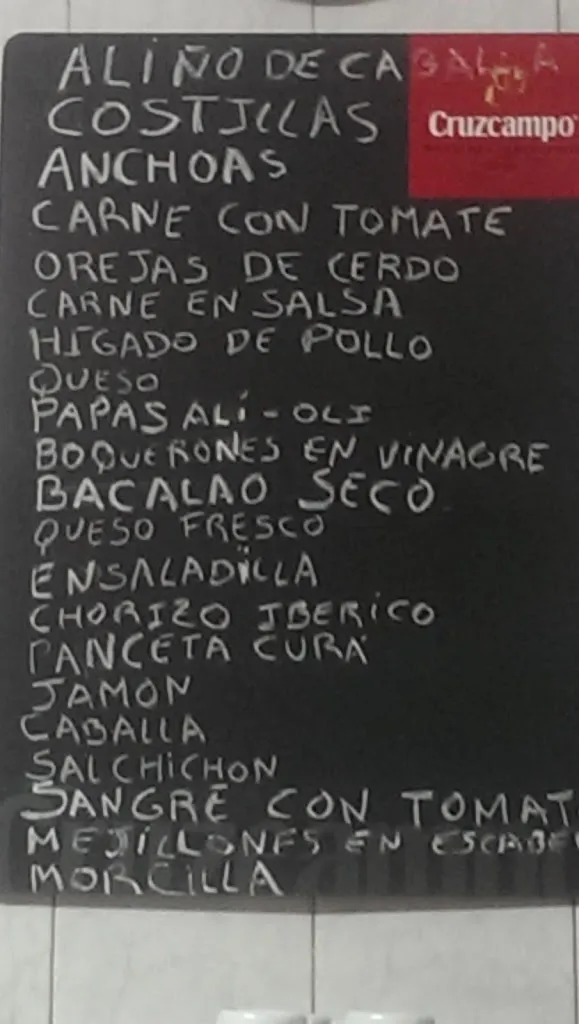 ALIÑO DE CABALLA
Cruzcampo
COSTILLAS
ANCHOAS
CARNE CON TOMATE
OREJAS DE CERDO
CARNE EN SALSA
HIGADO DE POLLO
QUESO
PAPAS ALÍ-OLI
BOQUERONES EN VINAGRE
BACALAO SECO
QUESO FRESCO
ENSALADILLA
CHORIZO IBERICO
PANCETA CURÁ
JAMON
CABALLA
SALCHICHON
SANGRE CON TOMAT
MEJILLONES EN ESCABE
MORCILLA